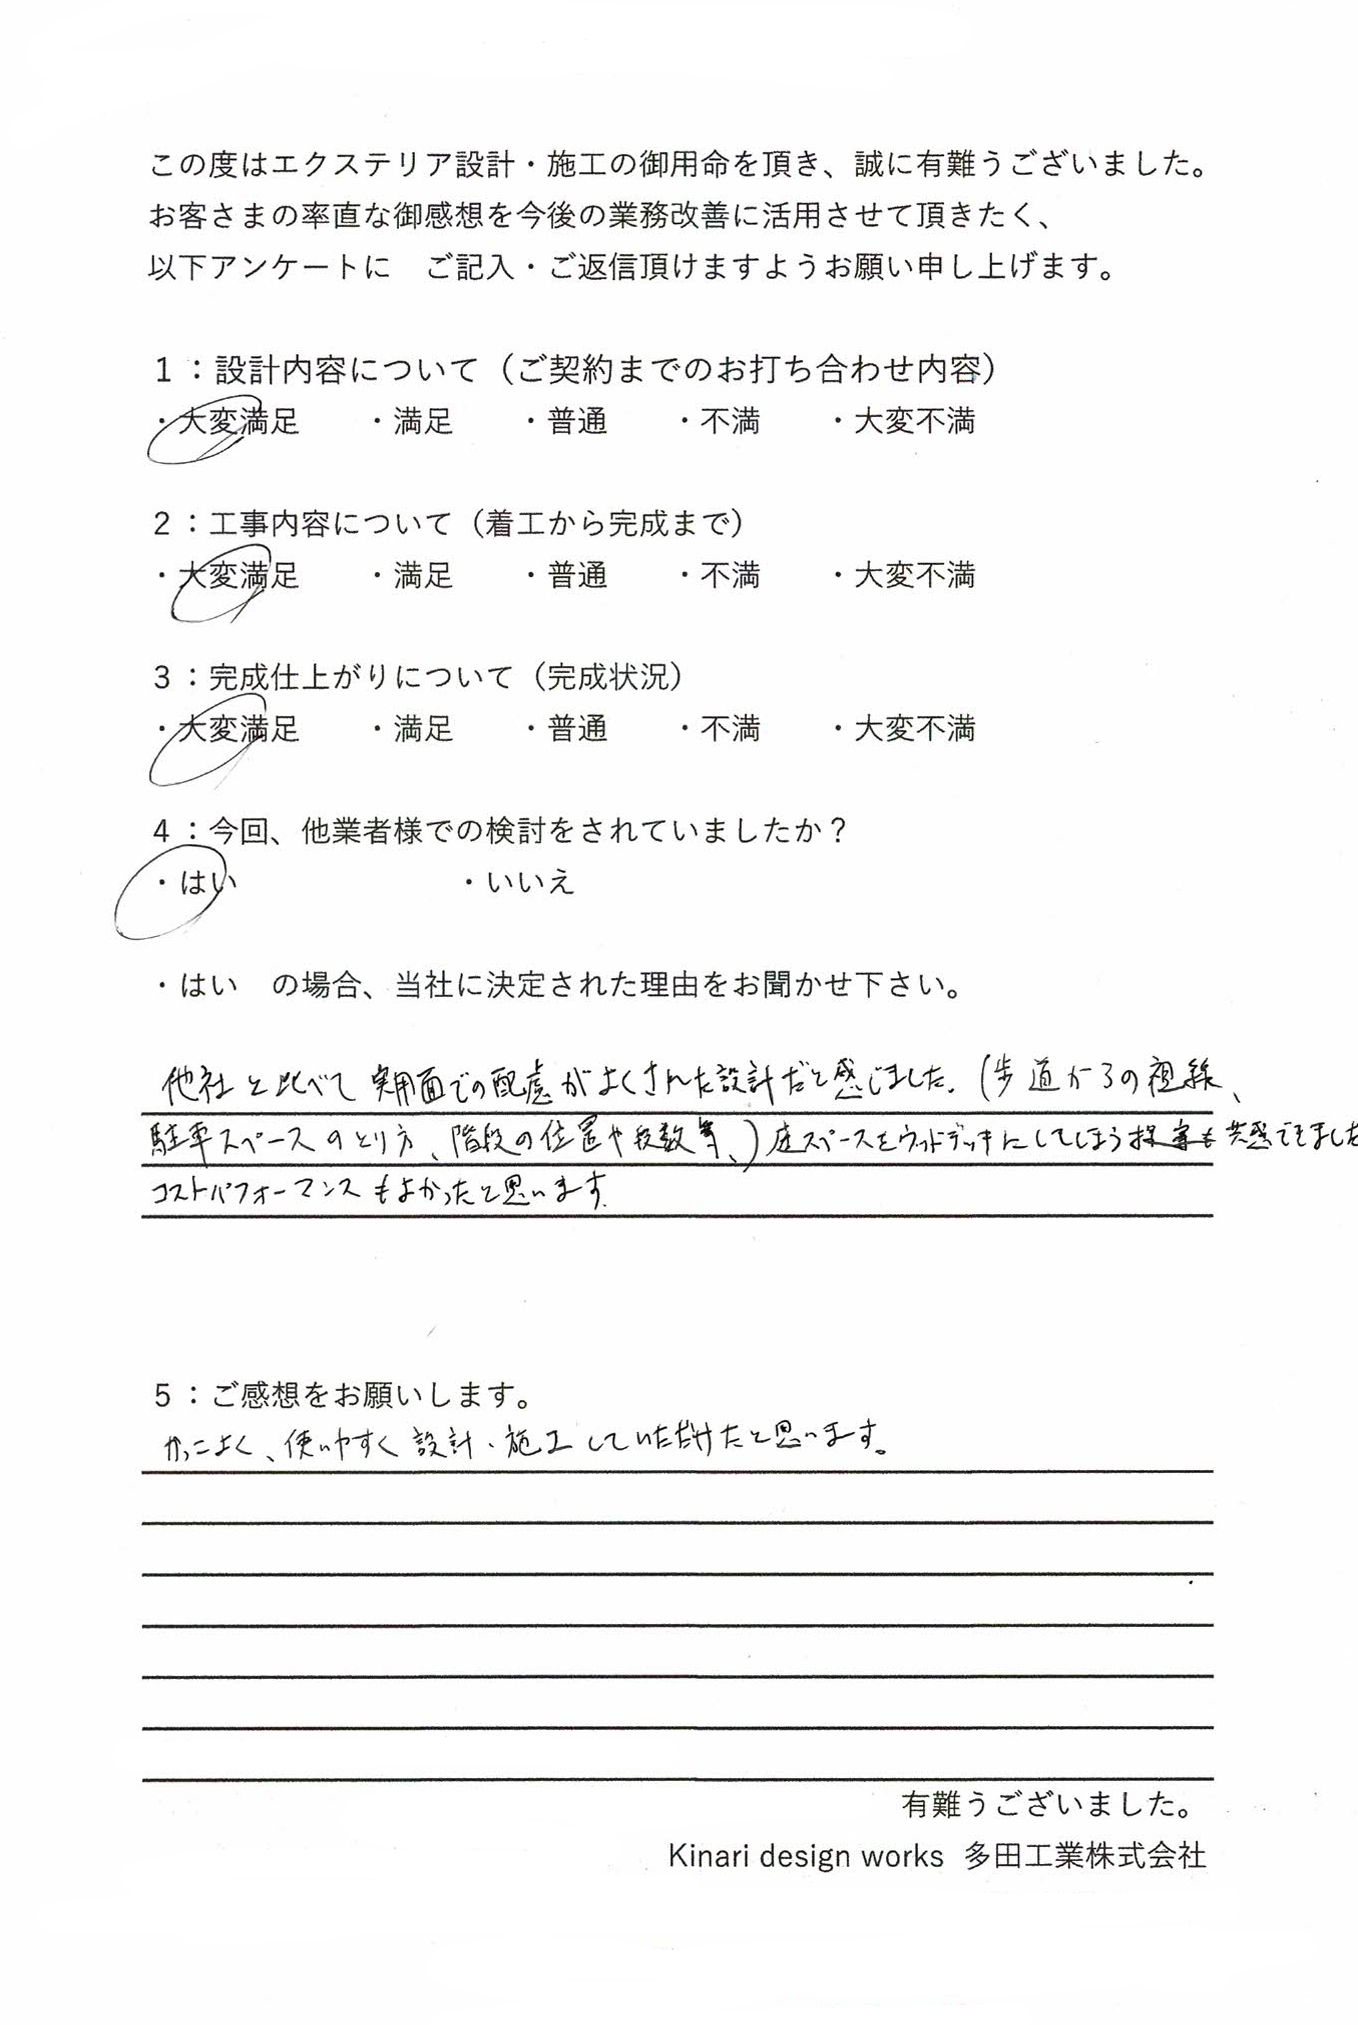 この度はエクステリア設計・施工の御用命を頂き、誠に有難うございました。
お客さまの率直な御感想を今後の業務改善に活用させて頂きたく、
以下アンケートに　ご記入・ご返信頂けますようお願い申し上げます。
1：設計内容について（ご契約までのお打ち合わせ内容）
・大変満足　・満足　・普通　・不満　・大変不満
2：工事内容について（着工から完成まで）
・大変満足　・満足　・普通　・不満　・大変不満
3：完成仕上がりについて（完成状況）
・大変満足　・満足　・普通　・不満　・大変不満
4：今回、他業者様での検討をされていましたか？
・はい　・いいえ
・はい　の場合、当社に決定された理由をお聞かせ下さい。
他社と比べて実用面での配慮がよくされた設計だと感じました。(歩道からの視線、
駐車スペースのとり方、階段の位置や段数等、)庭スペースをウッドデッキにしてしまう提案も共感できました
コストパフォーマンスもよかったと思います。
5：ご感想をお願いします。
かっこよく、使いやすく設計・施工していただけたと思います。
有難うございました。
Kinari design works 多田工業株式会社